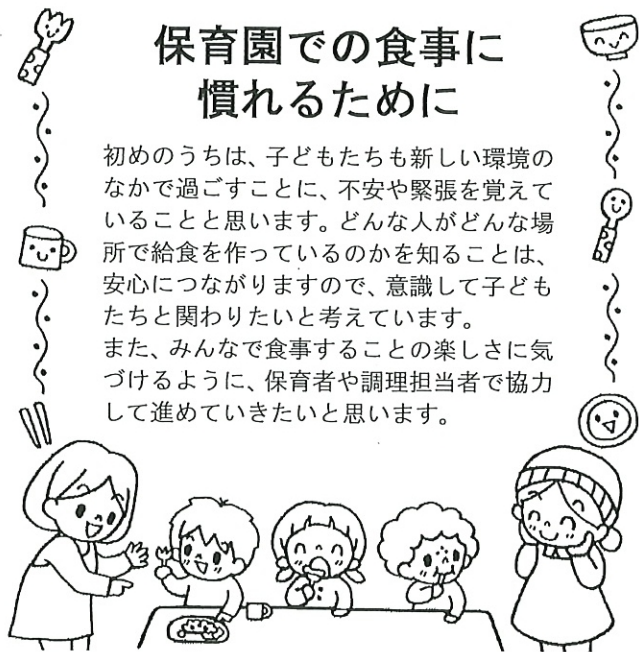 保育園での食事に
慣れるために
初めのうちは、子どもたちも新しい環境の
なかで過ごすことに、不安や緊張を覚えて
いることと思います。どんな人がどんな場
所で給食を作っているのかを知ることは、
安心につながりますので、意識して子ども
たちと関わりたいと考えています。
また、みんなで食事することの楽しさに気
づけるように、保育者や調理担当者で協力
して進めていきたいと思います。